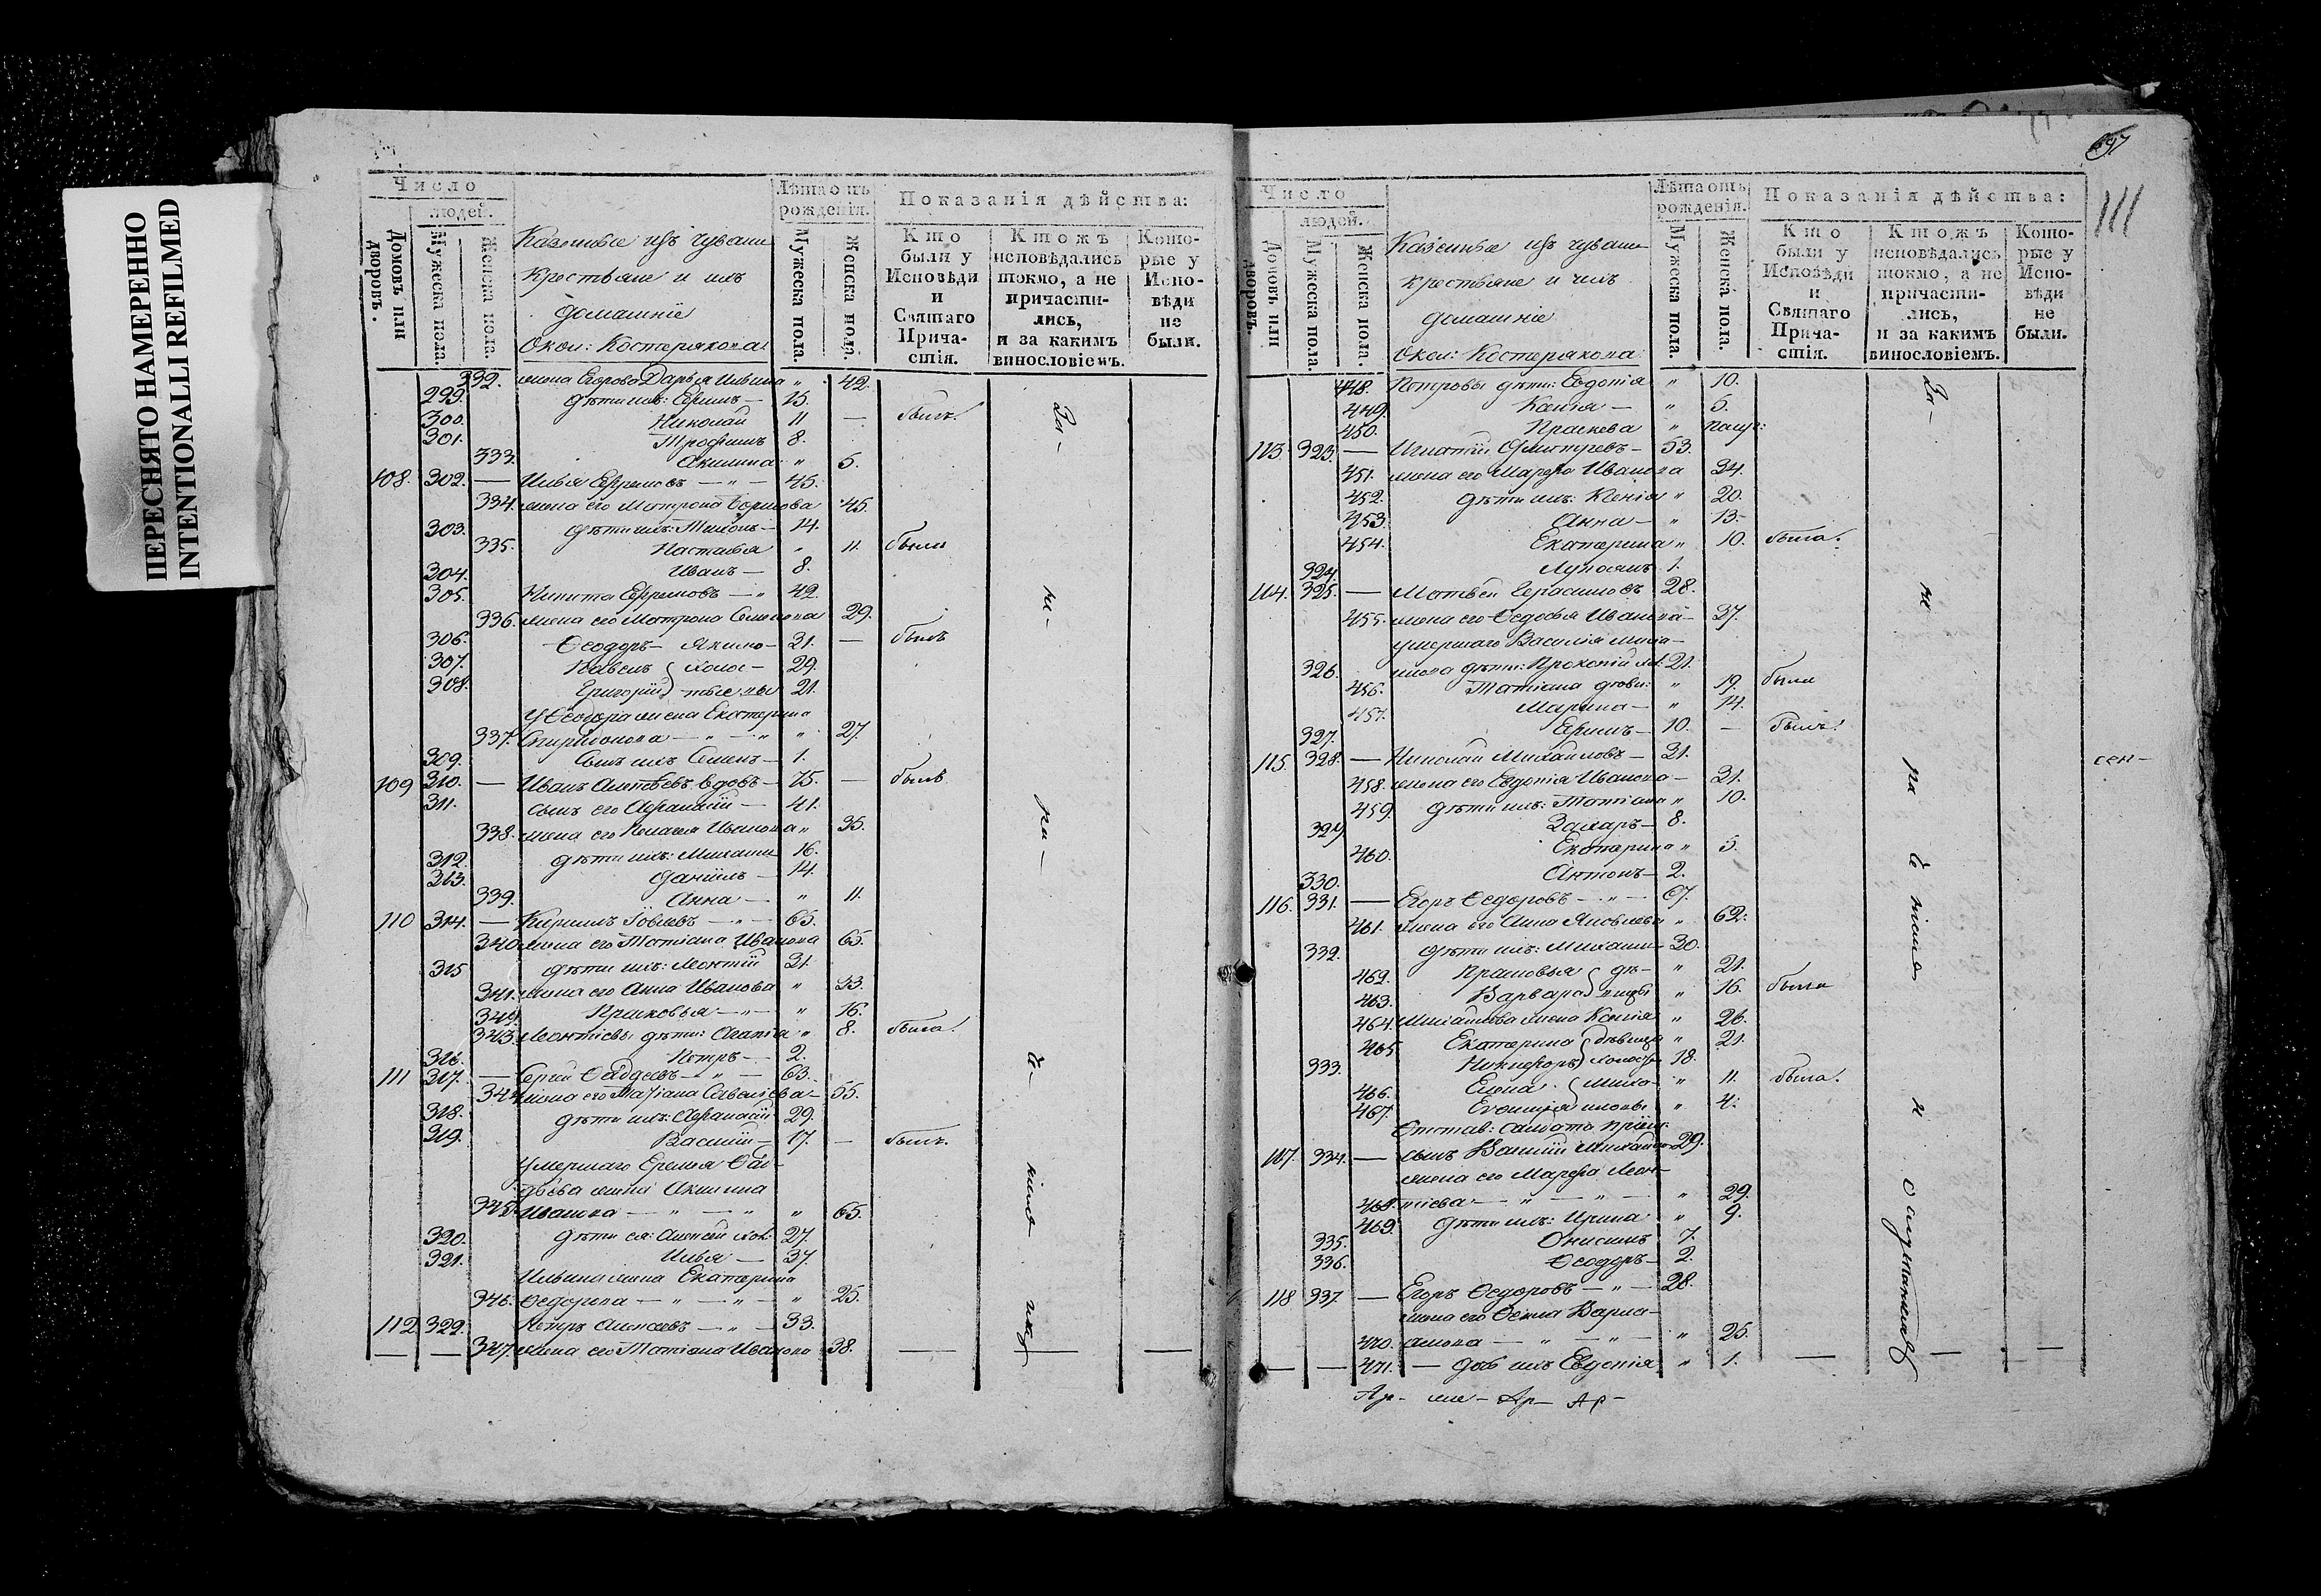 ПЕРЕСНЯТО НАМЕРЕННО
INTENTIONALLI REFILMED
Число
людей.
Домовъ или дворовъ.
Мужеска пола.
Женска пола.
Казенные изъ чуваш
крестьяне и ихъ
домашніе
Окол: Костерякова:
Лѣта отъ рожденія.
Мужеска пола.
Женска пола.
Показанія дѣйства:
Кто были у Исповѣди и Святаго Прича-стія.
Ктожъ исповѣдались токмо, а не причасти-лись, и за какимъ винословіемъ.
Кото-рые у Испо-вѣди не были.
332. жена Егорова Дарья Ильина " 42.
299. дѣти ихъ: Ефимъ — 15.
300. Николай 11 — былъ.
301. Трофимъ 8.
333. Акилина " 5.
108. 302. — Илья Ефремовъ — " — 45.
334. жена его Матрона 45.
303. дѣти ихъ: Тихонъ — 14.
335. Настасья " 11. были
304. Иванъ — 8.
305. Никита Ефремовъ — " 42.
336. жена его Матрона Семенова 29.
306. Ѳеодоръ — Якимо — 21. — былъ
307. Павелъ холос — 29.
308. Григорій тые 21.
У Ѳеодора жена Екатерина
337. Спиридонова — " — " " 27.
309. сынъ ихъ Семенъ — 1.
109 310. — Иванъ вдовъ — 75. — былъ
311. сынъ его Афанасій — 41.
338. жена его Пелагея Иванова " 35.
312. дѣти ихъ: Михаилъ 16.
313. Даніилъ — 14.
339. Анна — " 11.
110 314. — Кирилъ — " — 65.
340. жена его Татіана Иванова 65.
315 дѣти ихъ: Леонтій 31.
341. жена его Анна Иванова " 33.
342. Прасковья — " — " 16.
343. Леонтіевы дѣти: Агапія " 8. была.
316. Петръ — 2.
111 317. — Сергій — " — 63.
344. жена его Татіана Савельева — 55.
318. дѣти ихъ: Афанасій 29.
319. Василій — 17. — былъ.
Умершаго Еремея
жена Акилина
345. Иванова — " — " " 65.
320. дѣти ея: Алексѣй хол: 27.
321. Илья — 37.
Ильина жена Екатерина
346. Ѳедорова — " — " — " 25.
112 322. Петръ Алексѣевъ — " — 33.
347. жена его Татіана Иванова 38.
Число
людей.
Домовъ или дворовъ.
Мужеска пола
Женска пола.
Казенные изъ чуваш
крестьяне и ихъ
домашніе
Окол: Костерякова:
Лѣта отъ рожденія.
Мужеска пола.
Женска пола.
Показанія дѣйства:
Кто были у Исповѣди и Святаго Прича-стія.
Ктожъ исповѣдались токмо, а не причасти-лись, и за какимъ винословіемъ.
Кото-рые у Испо-вѣди не были.
111
448. Петровы дѣти: Евдокія " 10.
449. Ксенія — " 5.
450. "
113. 323. — Игнатій Дмитріевъ — 53.
451. жена его Марфа Иванова 34.
452. дѣти ихъ: Ксенія " 20.
453. Анна — " 13.
454. Екатерина " 10. была.
324. 1.
114. 325. — Матвей Герасимовъ 28.
455. жена его Ѳедосья Иванова — 37.
умершаго Василія
326. дѣти: Прокопій хол: 21.
456. Татіана дѣви: " 19. были
457. Марина — " 14.
327. Ефимъ — 10. — былъ.
115. 328. — Николай Михаиловъ — 31.
458. жена его Евдокія Иванова — 31.
459. дѣти ихъ: Татіана " 10.
329 Захаръ — 8.
460. Екатерина " 5.
330. Антонъ — 2.
116. 331. — Егоръ Ѳедоровъ — " — 67.
461. жена его Анна Яковлева " 62.
332. дѣти ихъ: Михаилъ — 30.
462. Прасковья дѣ- " 21.
463. Варвара вицы " 16. были
464. Михайлова жена Ксенія " 26.
465 Екатерина дѣвица " 21.
333. Никифоръ холостъ 18.
466. Елена " 11. была.
467. " 4.
Отстав: солдата
117. 334. — сынъ Василій 29.
жена его Марфа Леон-
468. тіева — " — " — " 29.
469. дѣти ихъ: Ирина " 9.
335. Онисимъ 7.
336. Ѳеодоръ — 2.
118 337 — Егоръ Ѳедоровъ — " — 28.
жена его Варла-
470. амова — " — " — " 25.
471. — дочь ихъ Евдокія " 1.